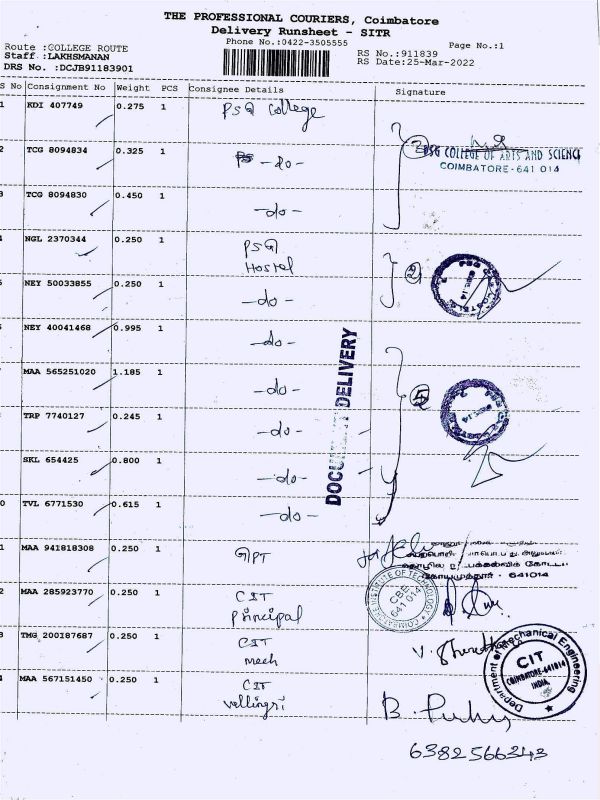 THE PROFESSIONAL COURIERS, Coimbatore
Delivery Runsheet - SITR
Phone No.:0422-3505555
Page No.:1
Route :COLLEGE ROUTE
RS No.:911839
Staff :LAKHSMANAN
RS Date:25-Mar-2022
DRS No. :DCJB91183901
S No Consignment No Weight PCS Consignee Details Signature
1 KDI 407749 0.275 1 PSG College
2 TCG 8094834 0.325 1 -do-
3 PSG COLLEGE OF ARTS AND SCIENCE
COIMBATORE-641 014
3 TCG 8094830 0.450 1 -do-
4 NGL 2370344 0.250 1 PSG
Hostel
2
5 NEY 50033855 0.250 1 -do-
6 NEY 40041468 0.995 1 -do-
7 MAA 565251020 1.185 1 -do-
5
DOCUMENTS DELIVERY
TRP 7740127 0.245 1 -do-
SKL 654425 0.800 1 -do-
0 TVL 6771530 0.615 1 -do-
1 MAA 941818308 0.250 1 GPT
கோயமுத்தூர் - 641014
2 MAA 285923770 0.250 1 CIT
Principal
COIMBATORE INSTITUTE OF TECHNOLOGY
CBE
641 014
3 TMG 200187687 0.250 1 CIT
Mech
Department of Mechanical Engineering
CIT
COIMBATORE-641014
INDIA
4 MAA 567151450 0.250 1 CIT
Vellingri
6382566343